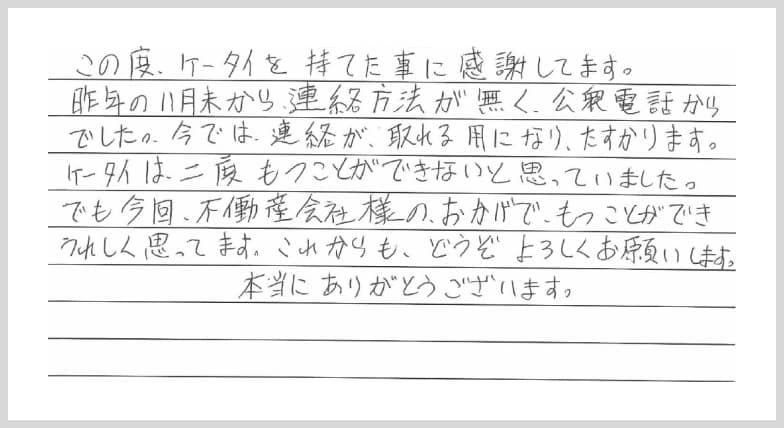 この度、ケータイを持てた事に感謝してます。
昨年の11月末から、連絡方法が無く、公衆電話から
でした。今では、連絡が、取れる用になり、たすかります。
ケータイは、二度もつことができないと思っていました。
でも今回、不働産会社様の、おかげで、もつことができ
うれしく思ってます。これからも、どうぞよろしくお願いします。
本当にありがとうございます。